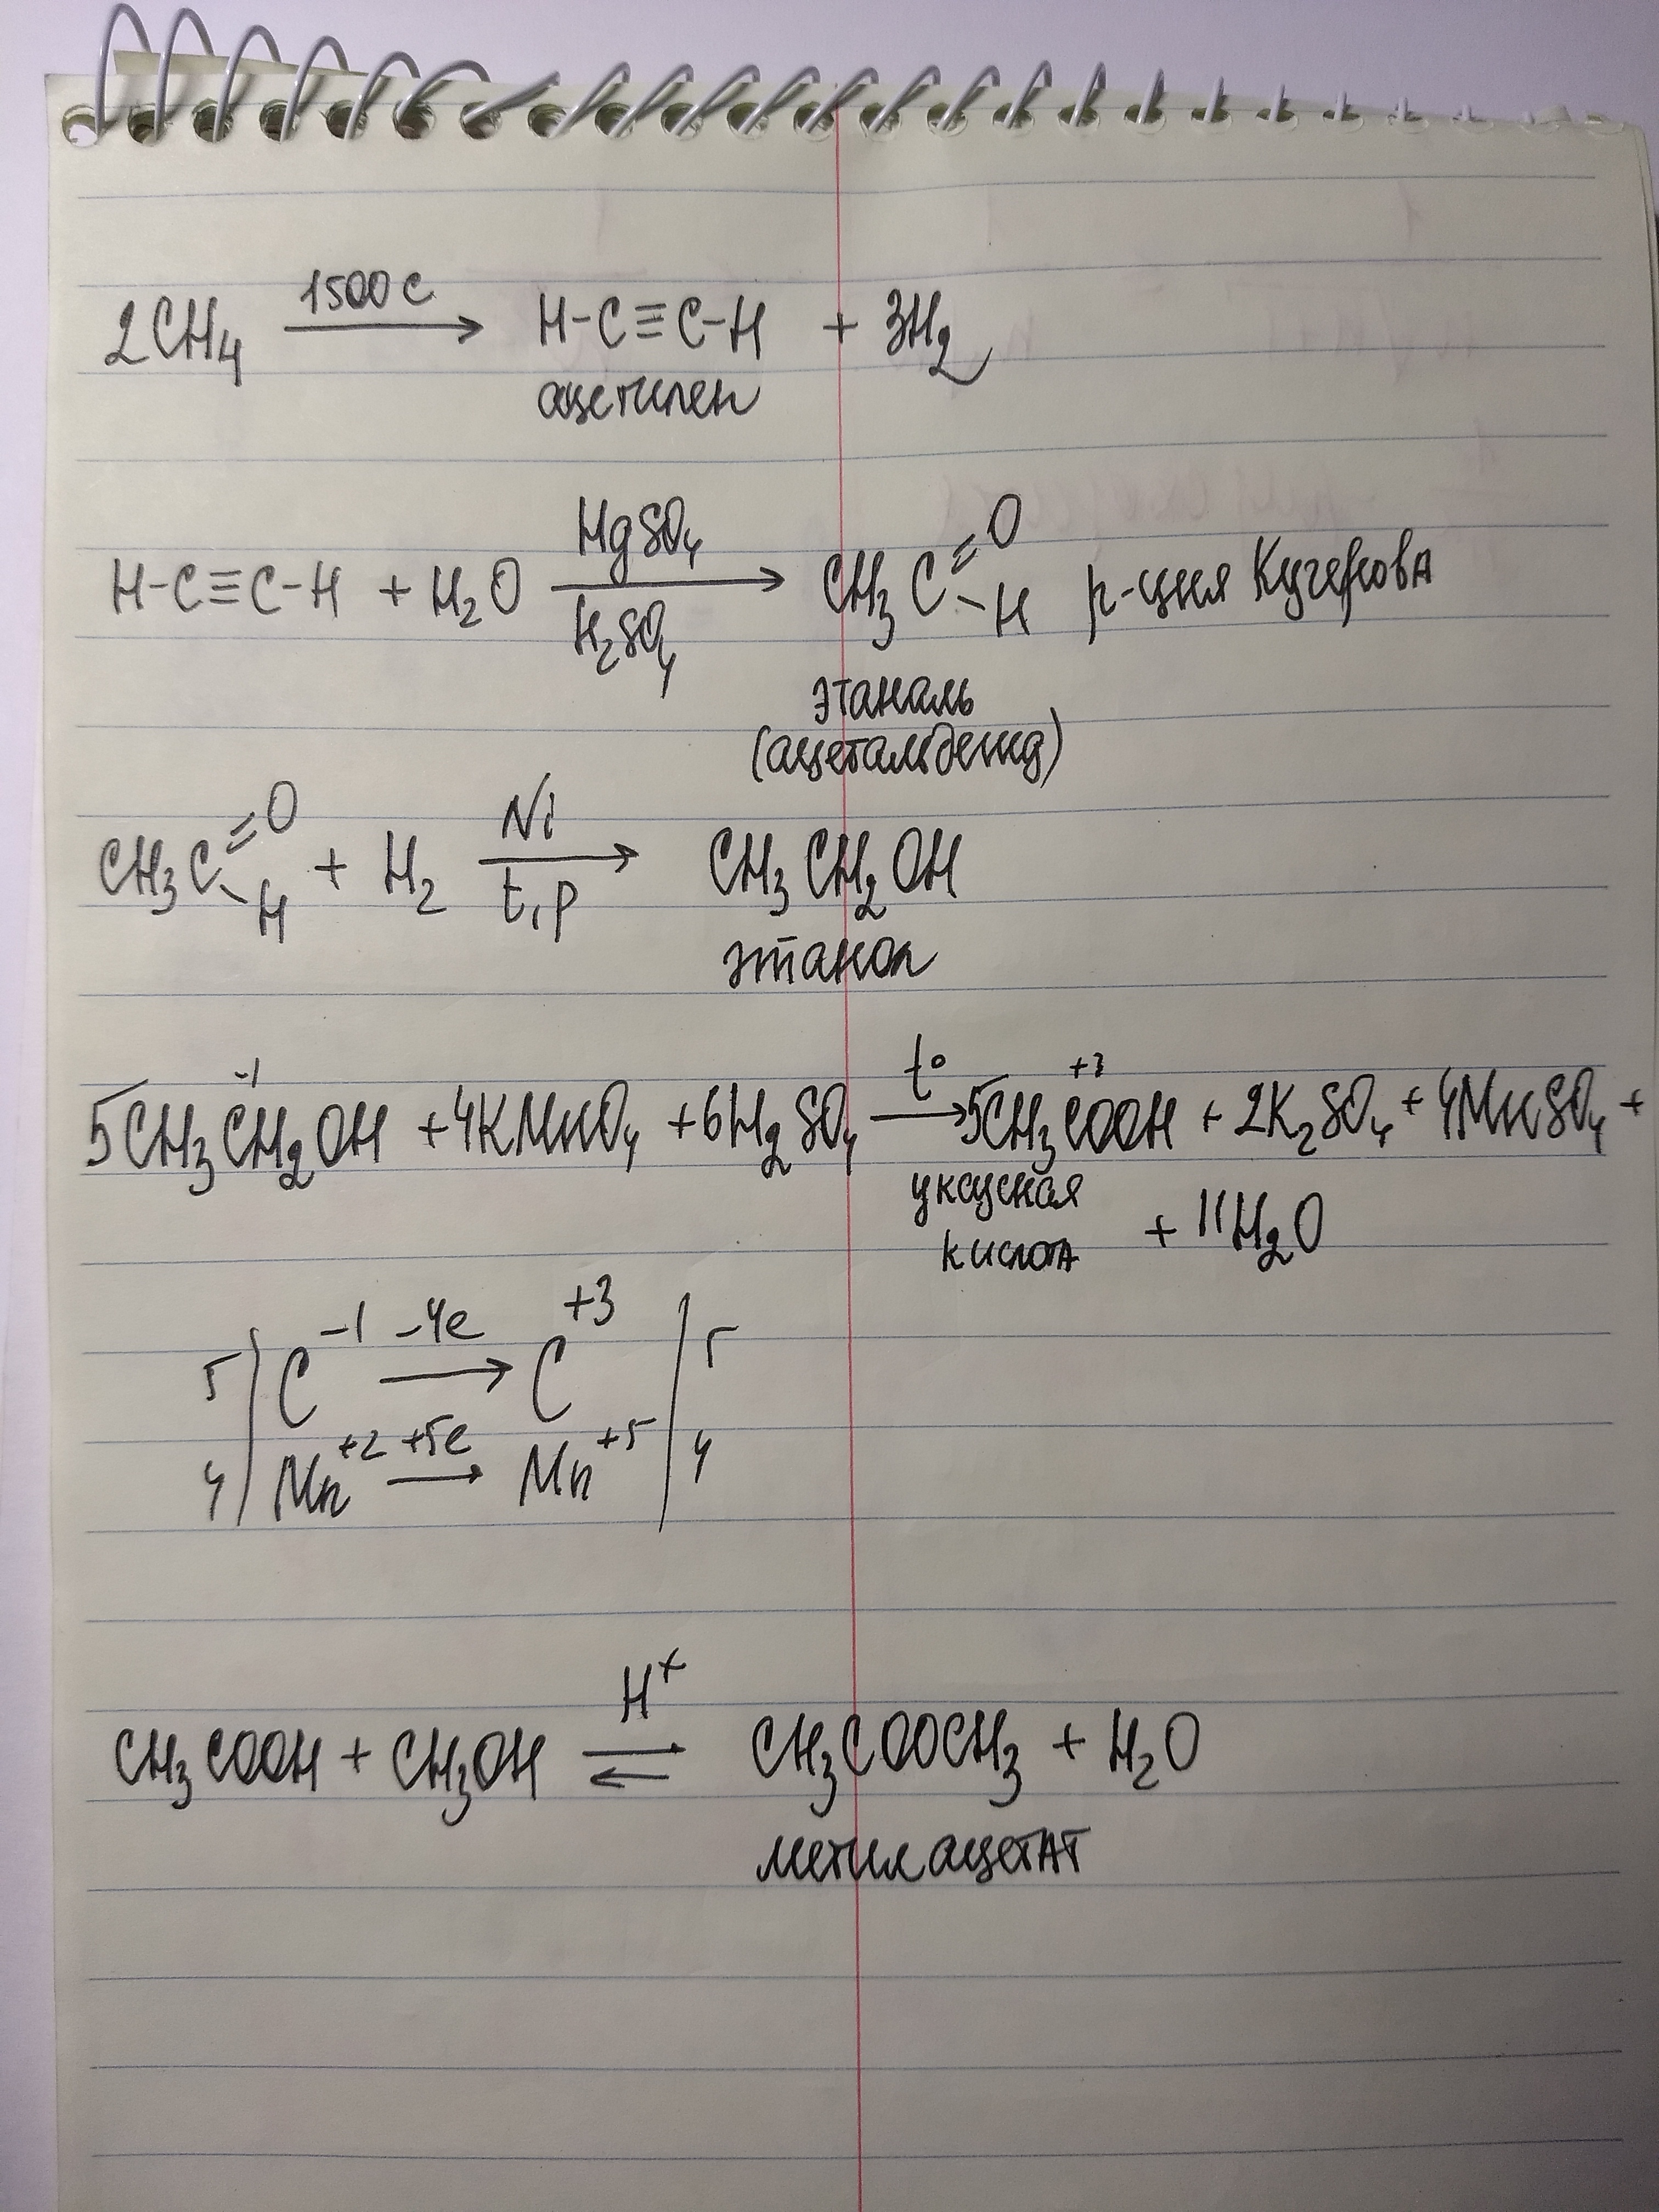 2CH₄ —1500 C→ H-C≡C-H + 3H₂
ацетилен
H-C≡C-H + H₂O —HgSO₄/H₂SO₄→ CH₃C(=O)-H р-ция Кучерова
этаналь
(ацетальдегид)
CH₃C(=O)-H + H₂ —Ni/t, p→ CH₃CH₂OH
этанол
5CH₃C⁻¹H₂OH + 4KMnO₄ + 6H₂SO₄ —t°→ 5CH₃C⁺³OOH + 2K₂SO₄ + 4MnSO₄ +
уксусная
кислота + 11H₂O
5 | C⁻¹ —-4e→ C⁺³ | 5
4 | Mn⁺² —+5e→ Mn⁺⁵ | 4
CH₃COOH + CH₃OH ⇌ H⁺ CH₃COOCH₃ + H₂O
метилацетат